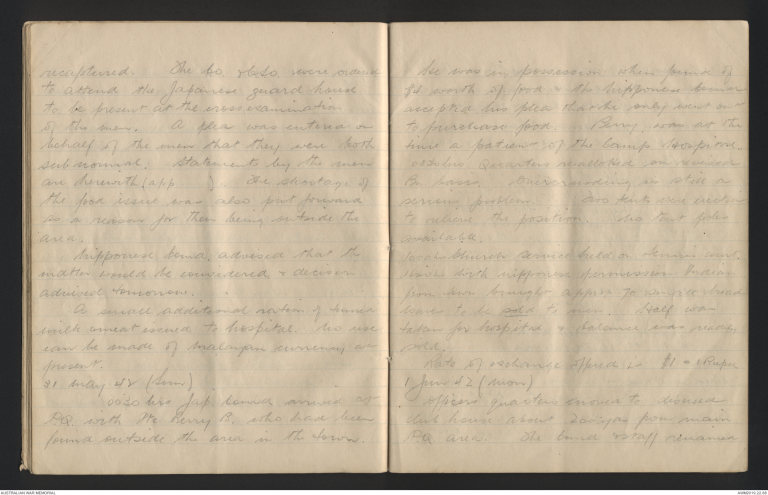 recaptured. The Co &            were ordered
to attend the Japanese guard house
to be present at the cross examination
of the men. A plea was entered on
behalf of the men that they were both
sub normal. Statements by the men
are herewith (app   ). The shortage of
the food issue was also put forward
as a reason for them being outside the
area.
Nipponese Comd. advised that the
matter would be considered & decision
advised tomorrow.
A small additional ration of tinned
milk & meat issued to hospital. No use
can be made of Malayan currency at
present.
31 May 42 (Sun)
0030 hrs Jap. Comd arrived at
HQ with Pte Berry B. who had been
found outside the area in the town.
He was in possession when found of
$1 worth of food & the Nipponese Comdr
accepted his plea that he only went out
to purchase food. Berry was at the
time a patient of the Camp Hospital.
Quarters reallotted on revised
Bn basis. Overcrowding is still a
serious problem. Two tents were erected
to relieve the position. No tent poles
available.
Church Service held on tennis court.
With Nipponese permission Indian
from          brought approx 70          bread
       to be sold to men. Half was
taken for hospital & balance was readily
sold.
Rate of exchange offered is $1 = 1 Rupee
1 June 42 (Mon)
Officers quarters moved to disused
club house about 200 yds from main
HQ area. The Comd & staff remained
AUSTRALIAN WAR MEMORIAL
AWM2019.22.68